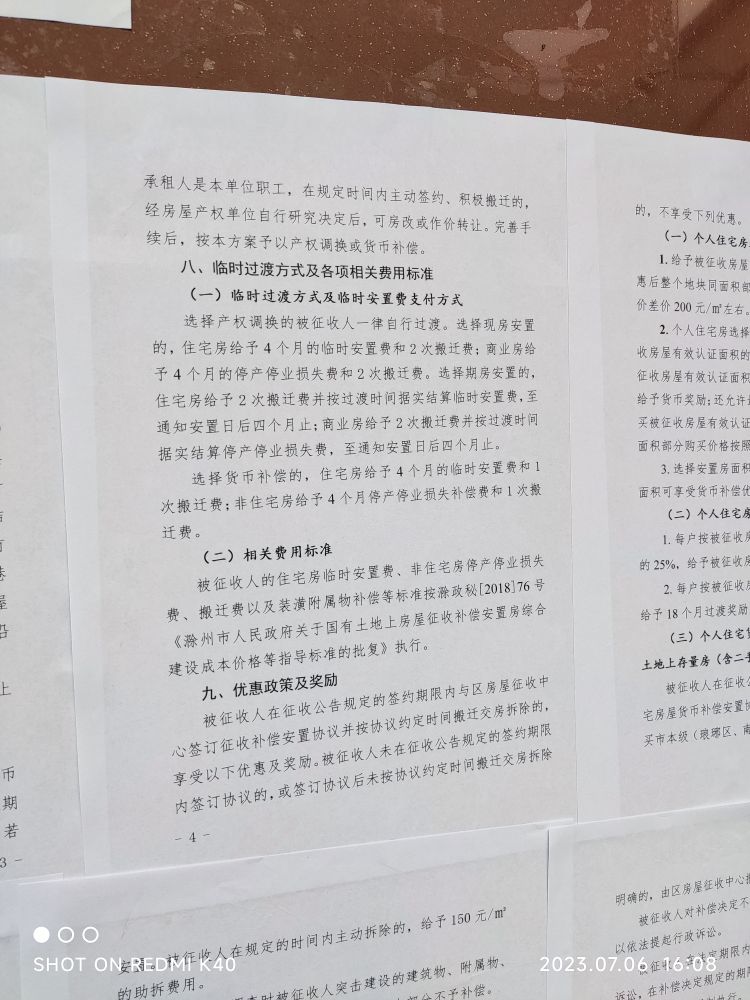 承租人是本单位职工，在规定时间内主动签约、积极搬迁的，
经房屋产权单位自行研究决定后，可房改或作价转让。完善手
续后，按本方案予以产权调换或货币补偿。
八、临时过渡方式及各项相关费用标准
（一）临时过渡方式及临时安置费支付方式
选择产权调换的被征收人一律自行过渡。选择现房安置
的，住宅房给予 4 个月的临时安置费和 2 次搬迁费；商业房给
予 4 个月的停产停业损失费和 2 次搬迁费。选择期房安置的，
住宅房给予 2 次搬迁费并按过渡时间据实结算临时安置费，至
通知安置日后四个月止；商业房给予 2 次搬迁费并按过渡时间
据实结算停产停业损失费，至通知安置日后四个月止。
选择货币补偿的，住宅房给予 4 个月的临时安置费和 1
次搬迁费；非住宅房给予 4 个月停产停业损失补偿费和 1 次搬
迁费。
（二）相关费用标准
被征收人的住宅房临时安置费、非住宅房停产停业损失
费、搬迁费以及装潢附属物补偿等标准按滁政秘[2018]76 号
《滁州市人民政府关于国有土地上房屋征收补偿安置房综合
建设成本价格等指导标准的批复》执行。
九、优惠政策及奖励
被征收人在征收公告规定的签约期限内与区房屋征收中
心签订征收补偿安置协议并按协议约定时间搬迁交房拆除的，
享受以下优惠及奖励。被征收人未在征收公告规定的签约期限
内签订协议的，或签订协议后未按协议约定时间搬迁交房拆除
- 4 -
的，不享受下列优惠。
（一）个人住宅房
1. 给予被征收房屋
惠后整个地块同面积部
价差价 200 元/㎡左右。
2. 个人住宅房选择
收房屋有效认证面积的
征收房屋有效认证面积
给予货币奖励；还允许
买被征收房屋有效认证
面积部分购买价格按照
3. 选择安置房面积
面积可享受货币补偿优
（二）个人住宅房
1. 每户按被征收房
的 25%，给予被征收房
2. 每户按被征收房
给予 18 个月过渡奖励
（三）个人住宅
土地上存量房（含二手
被征收人在征收公
宅房屋货币补偿安置协
买市本级（琅琊区、南
上
币
期
若
3 -
被征收人在规定的时间内主动拆除的，给予 150 元/㎡
的助拆费用。
被征收人突击建设的建筑物、附属物、
部分不予补偿。
明确的，由区房屋征收中心
被征收人对补偿决定不
以依法提起行政诉讼。
被征收人在法定期限内
诉讼，在补偿决定规定的期限
SHOT ON REDMI K40
2023.07.06 16:08